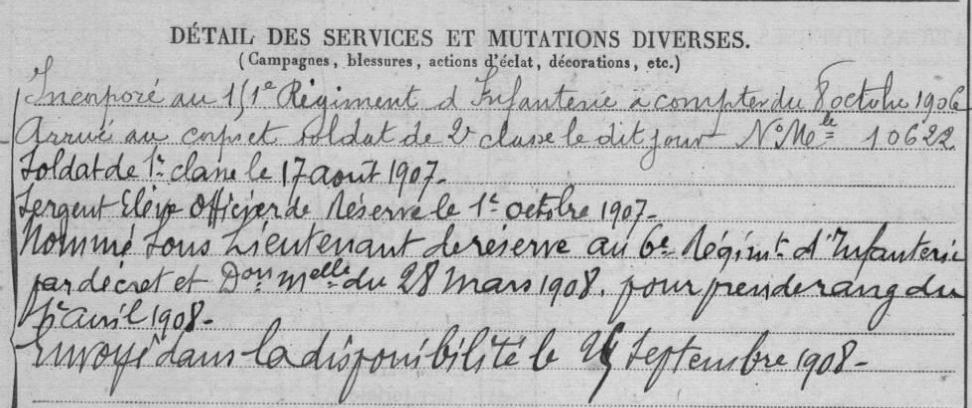 DÉTAIL DES SERVICES ET MUTATIONS DIVERSES.
(Campagnes, blessures, actions d'éclat, décorations, etc.)
Incorporé au 151e Régiment d'Infanterie à compter du 8 octobre 1906
Arrivé au corps et soldat de 2e classe le dit jour N° Mle 10622
Soldat de 1re classe le 17 août 1907.
Sergent Elève Officier de Réserve le 1er octobre 1907.
Nommé Sous Lieutenant de réserve au 6e Régimt d'Infanterie
par décret et Don Melle du 28 Mars 1908. pour prendre rang du
1er avril 1908.
Envoyé dans la disponibilité le Septembre 1908.